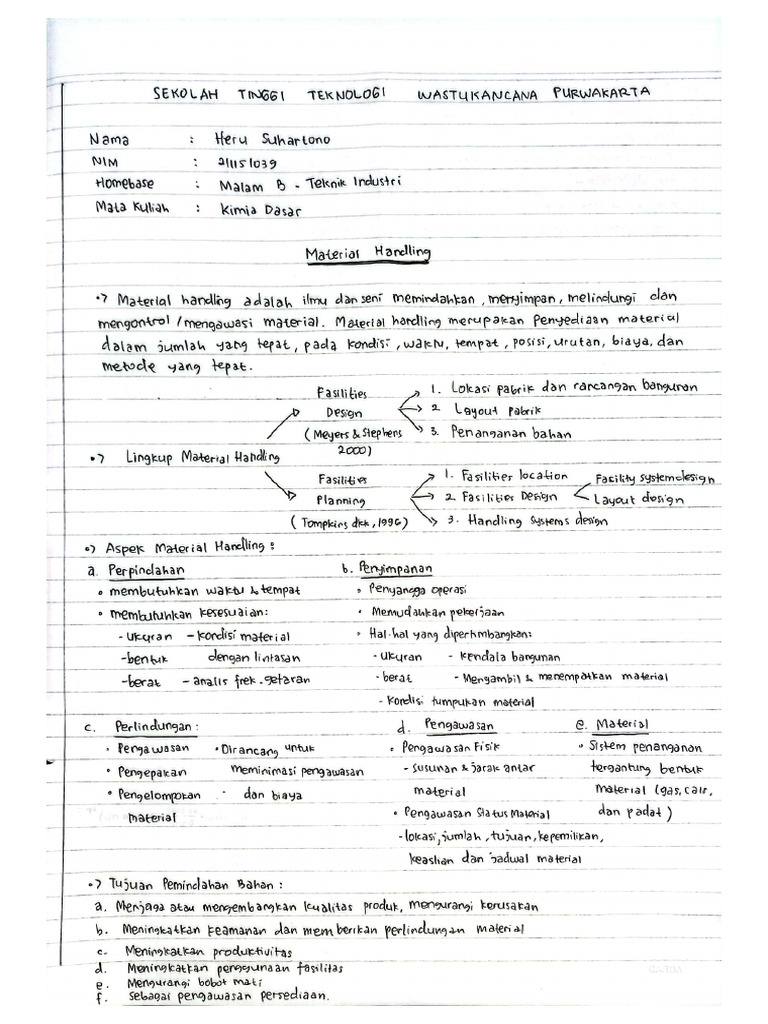 SEKOLAH TINGGI TEKNOLOGI WASTUKANCANA PURWAKARTA
Nama : Heru Suhartono
NIM : 211151039
Homebase : Malam B - Teknik Industri
Mata Kuliah : Kimia Dasar
Material Handling
•> Material handling adalah ilmu dan seni memindahkan, menyimpan, melindungi dan
mengontrol / mengawasi material. Material handling merupakan penyediaan material
dalam jumlah yang tepat, pada kondisi, waktu, tempat, posisi, urutan, biaya, dan
metode yang tepat.
Fasilities
Design
(Meyers & Stephens
2000)
1. Lokasi pabrik dan rancangan bangunan
2. Layout pabrik
3. Penanganan bahan
•> Lingkup Material Handling
Fasilities
Planning
(Tompkins dkk, 1996)
1. Fasilities location
2. Fasilities Design
3. Handling systems design
Facility system design
Layout design
•> Aspek Material Handling :
a. Perpindahan
• membutuhkan waktu & tempat
• membutuhkan kesesuaian:
- ukuran - kondisi material
- bentuk dengan lintasan
- berat - analis frek. getaran
b. Penyimpanan
• Penyangga operasi
• Memudahkan pekerjaan
• Hal-hal yang dipertimbangkan:
- ukuran - kendala bangunan
- berat - Mengambil & menempatkan material
- Kondisi tumpukan material
c. Perlindungan :
• Pengawasan • Dirancang untuk
• Pengepakan meminimasi pengawasan
• Pengelompokan dan biaya
material
d. Pengawasan
• Pengawasan Fisik
- susunan & jarak antar
material
• Pengawasan Status Material
- lokasi, jumlah, tujuan, kepemilikan,
keaslian dan jadual material
e. Material
• Sistem penanganan
tergantung bentuk
material (gas, cair,
dan padat)
•> Tujuan Pemindahan Bahan :
a. Menjaga atau mengembangkan kualitas produk, mengurangi kerusakan
b. Meningkatkan keamanan dan memberikan perlindungan material
c. Meningkatkan produktivitas
d. Meningkatkan penggunaan fasilitas
e. Mengurangi bobot mati
f. Sebagai pengawasan persediaan.